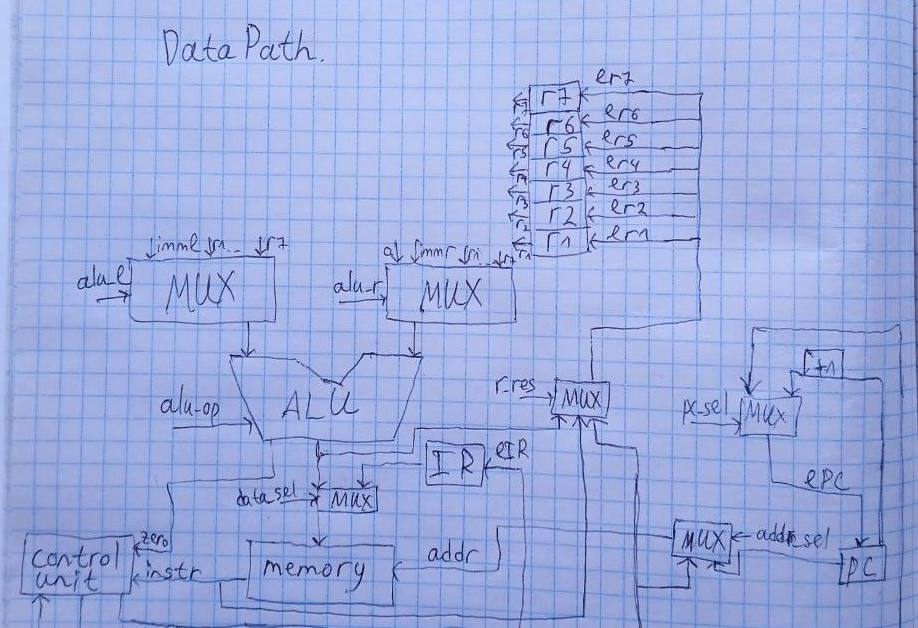 DataPath.
r7 er7
r6 er6
r5 er5
r4 er4
r3 er3
r2 er2
r1 er1
r7
r6
r5
r4
r3
r2
r1
imml r1... r7
0 immr r1... r7
alu_l MUX
alu_r MUX
ALU
alu_op
r_res MUX
+1
pc_sel MUX
ePC
IR eIR
data_sel MUX
zero
control unit
instr
memory
addr
MUX addr_sel
PC